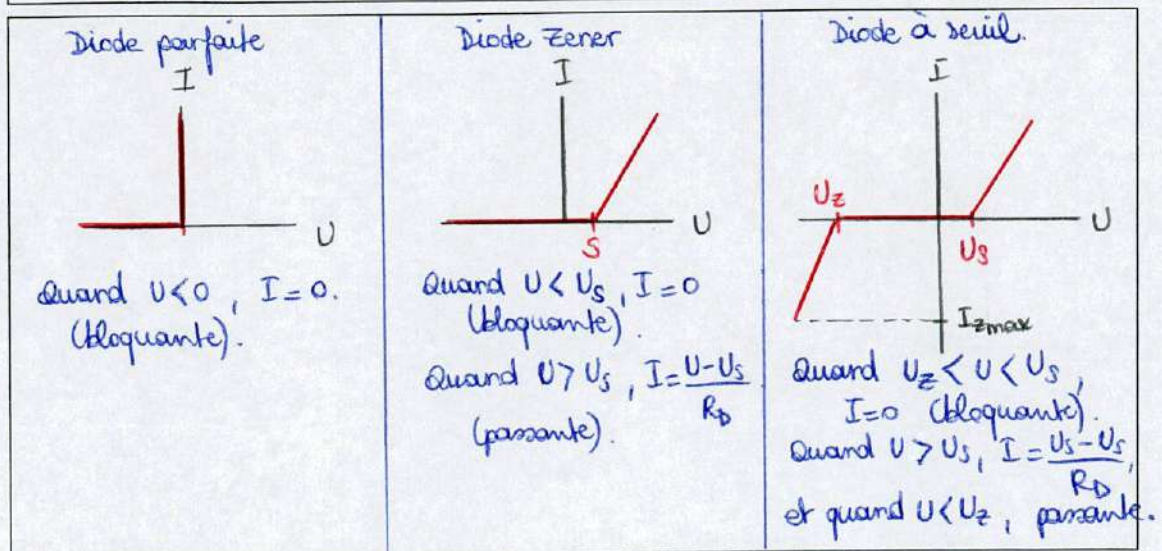 Diode parfaite
I
U
Quand U<0, I=0.
(bloquante).
Diode Zener
I
S
U
Quand U<U_S, I=0
(bloquante).
Quand U>U_S, I=\frac{U-U_S}{R_D}
(passante).
Diode à seuil.
I
U_Z
U_S
U
I_{zmax}
Quand U_Z<U<U_S,
I=0 (bloquante).
Quand U>U_S, I=\frac{U_S-U_S}{R_D},
et quand U<U_Z, passante.